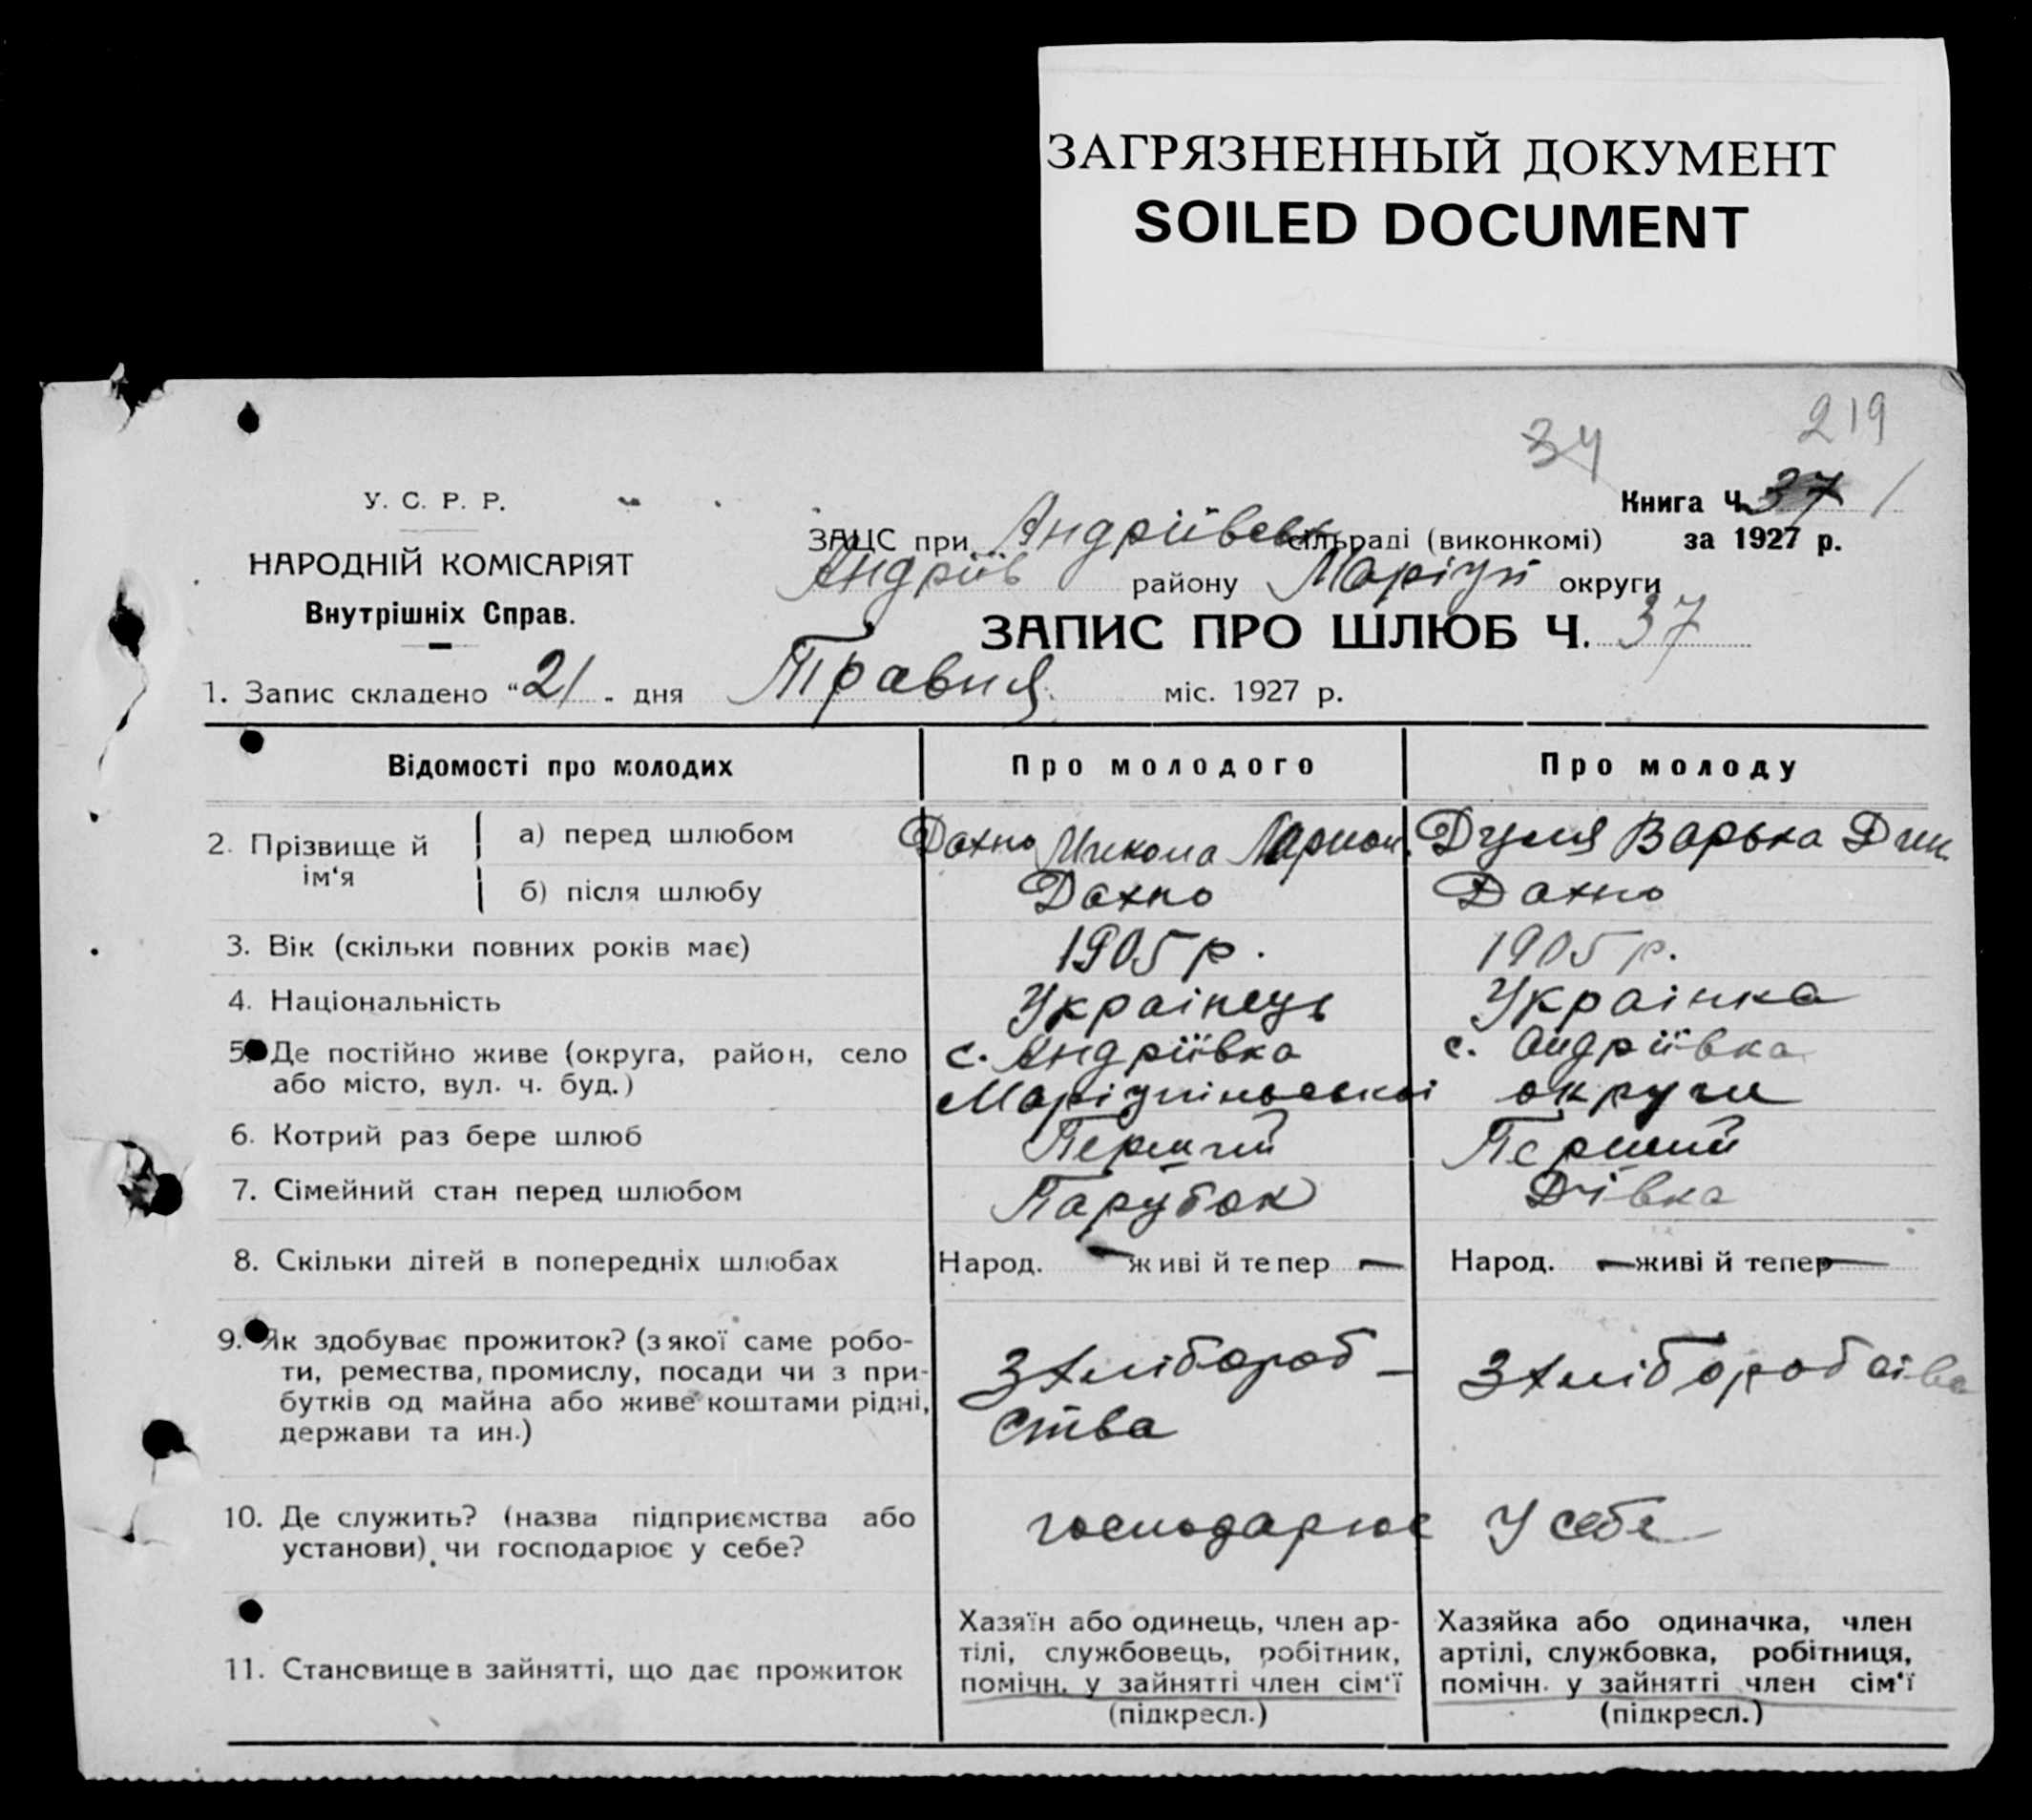 ЗАГРЯЗНЕННЫЙ ДОКУМЕНТ
SOILED DOCUMENT
219
34
У. С. Р. Р.
НАРОДНІЙ КОМІСАРІЯТ
Внутрішніх Справ.
Книга Ч. 37 1
за 1927 р.
ЗАЦС при Андріївськ сільраді (виконкомі)
Андріїв району Маріуп округи
ЗАПИС ПРО ШЛЮБ Ч. 37
1. Запис складено "21 - дня Травня міс. 1927 р.
Відомості про молодих Про молодого Про молоду
2. Прізвище й ім'я
а) перед шлюбом Дахно Микола Ларион. Дуля Варька Дми.
б) після шлюбу Дахно Дахно
3. Вік (скільки повних років має) 1905 р. 1905 р.
4. Національність Українець Українка
5. Де постійно живе (округа, район, село с. Андріївка с. Андріївка
або місто, вул. ч. буд.) Маріупільської округи
6. Котрий раз бере шлюб Перший Перший
7. Сімейний стан перед шлюбом Парубок Дівка
8. Скільки дітей в попередніх шлюбах Народ. — живі й тепер — Народ. — живі й тепер —
9. Як здобуває прожиток? (з якої саме робо-
ти, ремества, промислу, посади чи з при-
бутків од майна або живе коштами рідні,
держави та ин.)
З хлібороб-
ства
З хліборобства
10. Де служить? (назва підприємства або
установи), чи господарює у себе?
господарює У себе
11. Становище в зайнятті, що дає прожиток
Хазяїн або одинець, член ар-
тілі, службовець, робітник,
помічн. у зайнятті член сім'ї
(підкресл.)
Хазяйка або одиначка, член
артілі, службовка, робітниця,
помічн. у зайнятті член сім'ї
(підкресл.)